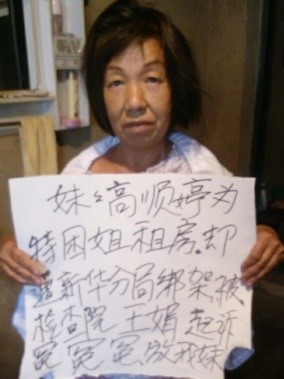 妹々高顺婷为
特困姐租房.却
遭新华分局绑架被
检查院王 起诉
冤冤冤放我妹